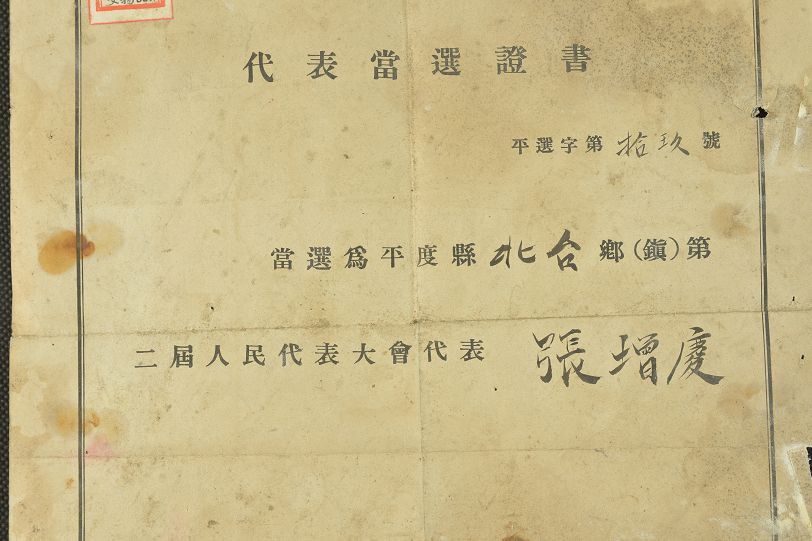 代表當選證書
平選字第拾玖號
當選爲平度縣北台鄉(鎮)第
二屆人民代表大會代表 張增慶